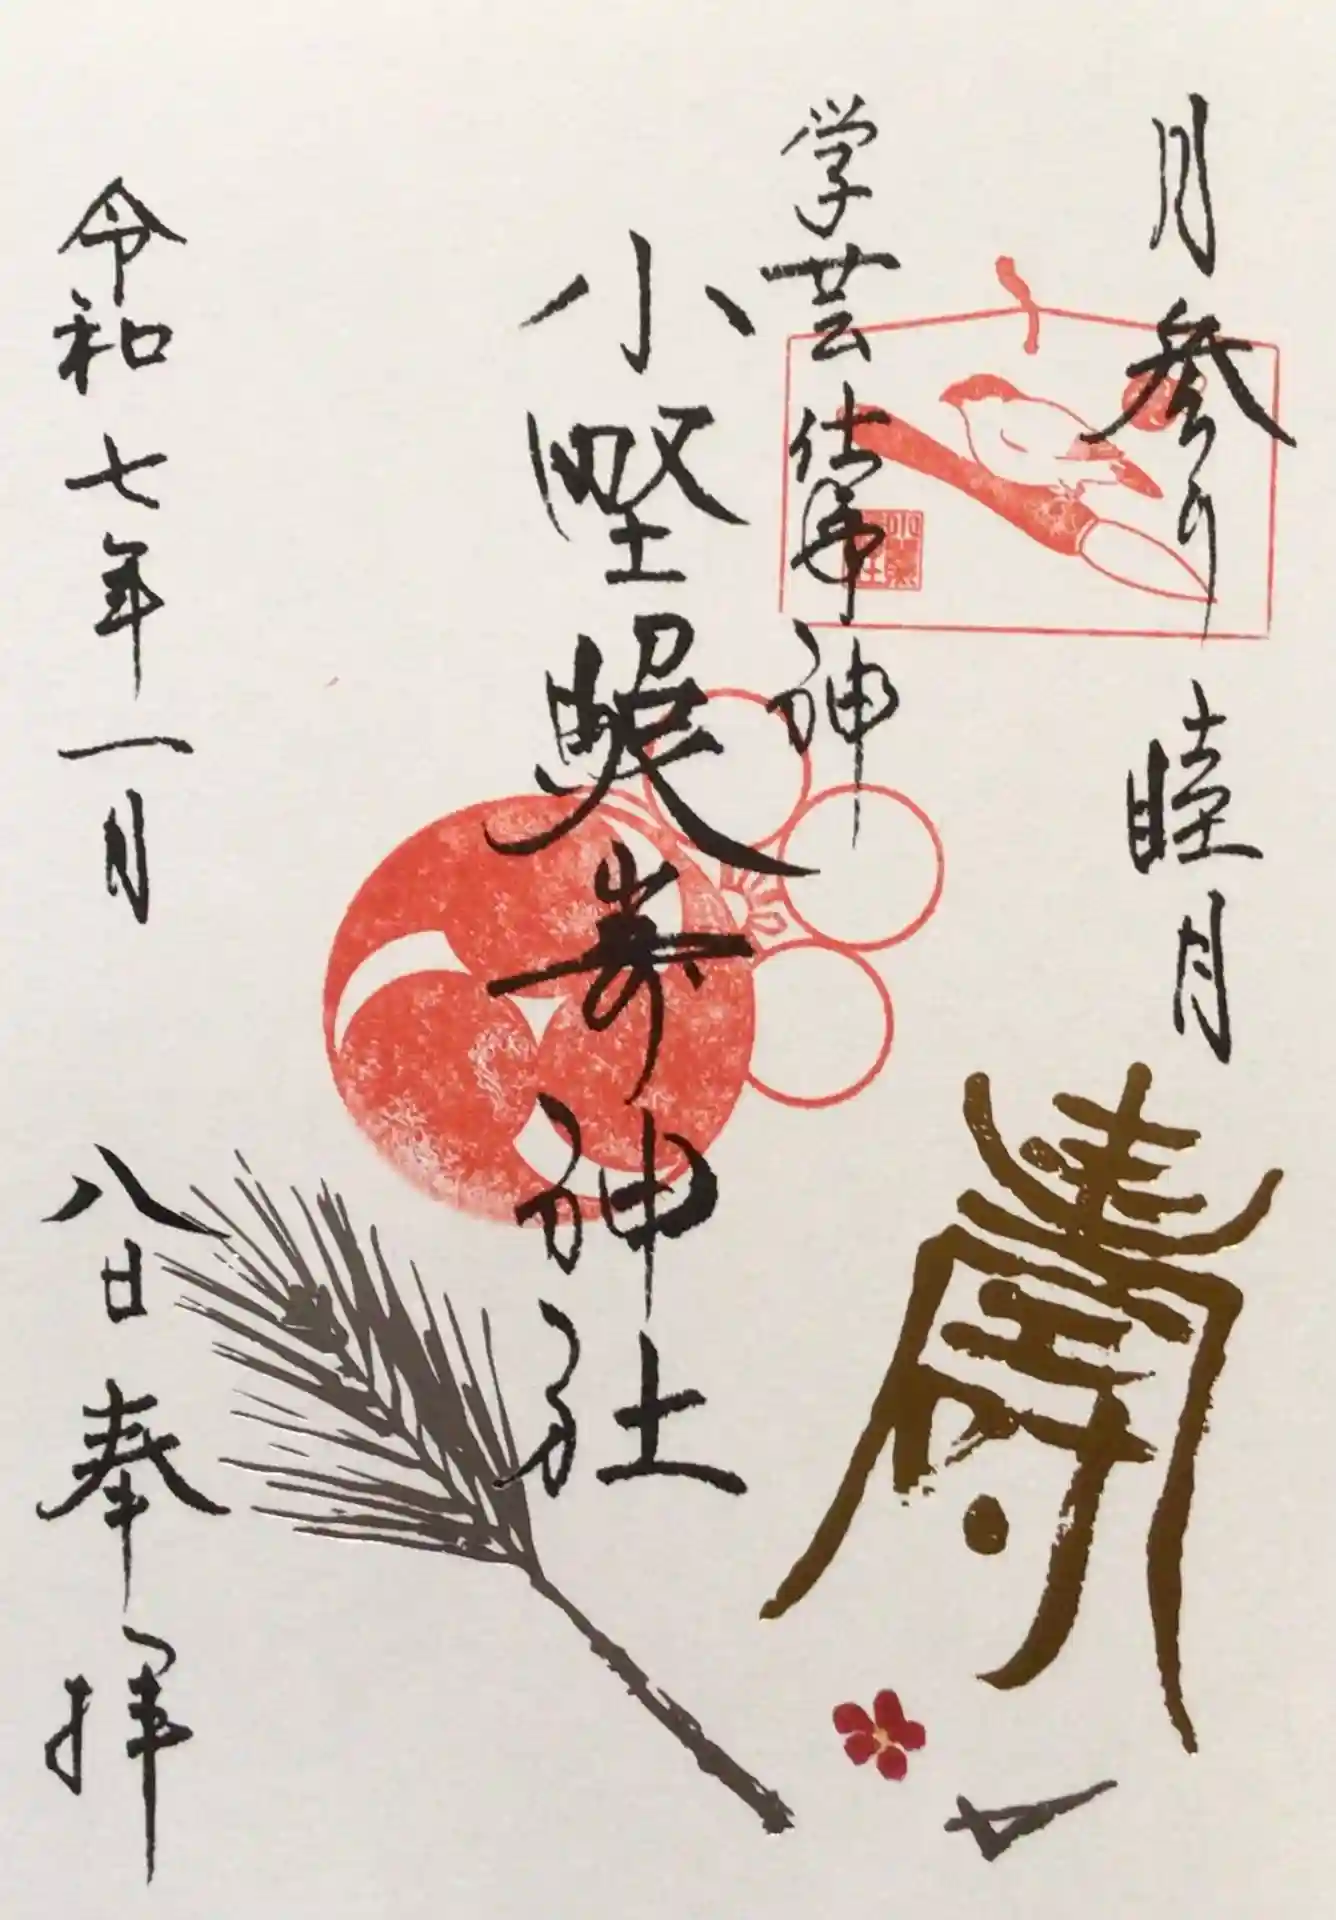 月参り 睦月
寿
学芸仕事神
小野照崎神社
令和七年一月八日奉拝